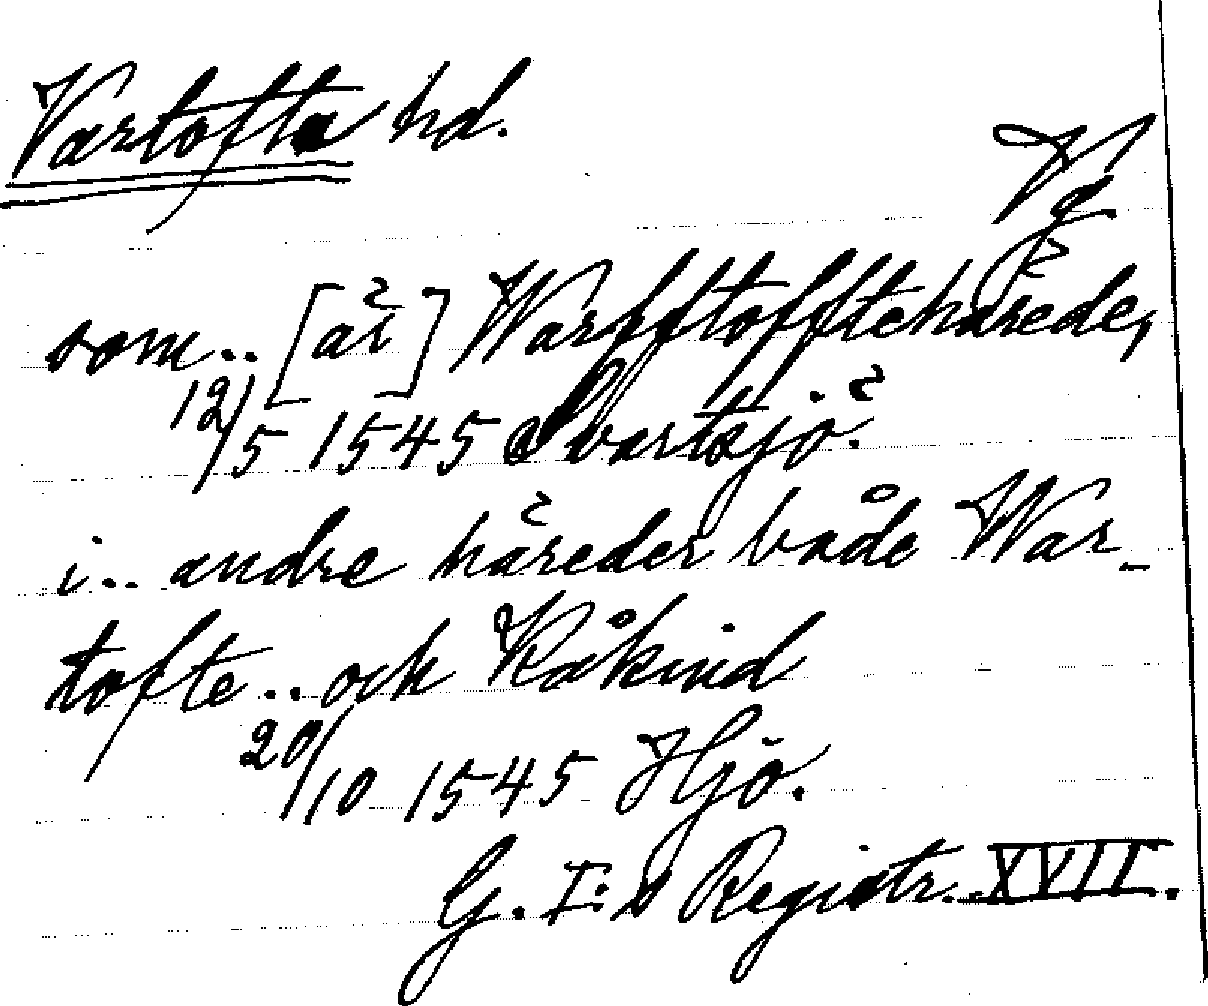 Vartofta hd.
Vg
som.. [är] Warfftofftehärede,
12/5 1545 Svartsjö.
i.. andre häreder både War-
tofte.. och Kåkind
20/10 1545 Hjo.
G. I:s Registr. XVII.